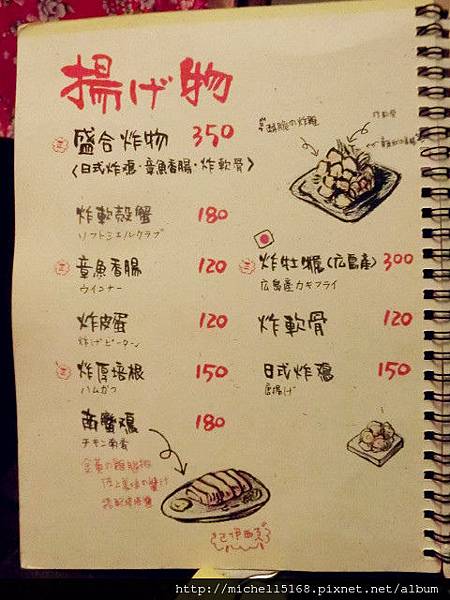 揚げ物
盛合炸物 350
(日式炸鷄・章魚香腸・炸軟骨)
炸軟殼蟹 180
ソフトシェルクラブ
章魚香腸 120
ウインナー
炸皮蛋 120
炸げピータン
炸厚培根 150
ハムカツ
南蠻鷄 180
チキン南蛮
炸牡蠣(広島産) 300
広島産カキフライ
炸軟骨 120
日式炸鷄 150
唐揚げ
http://michell5168.pixnet.net/album